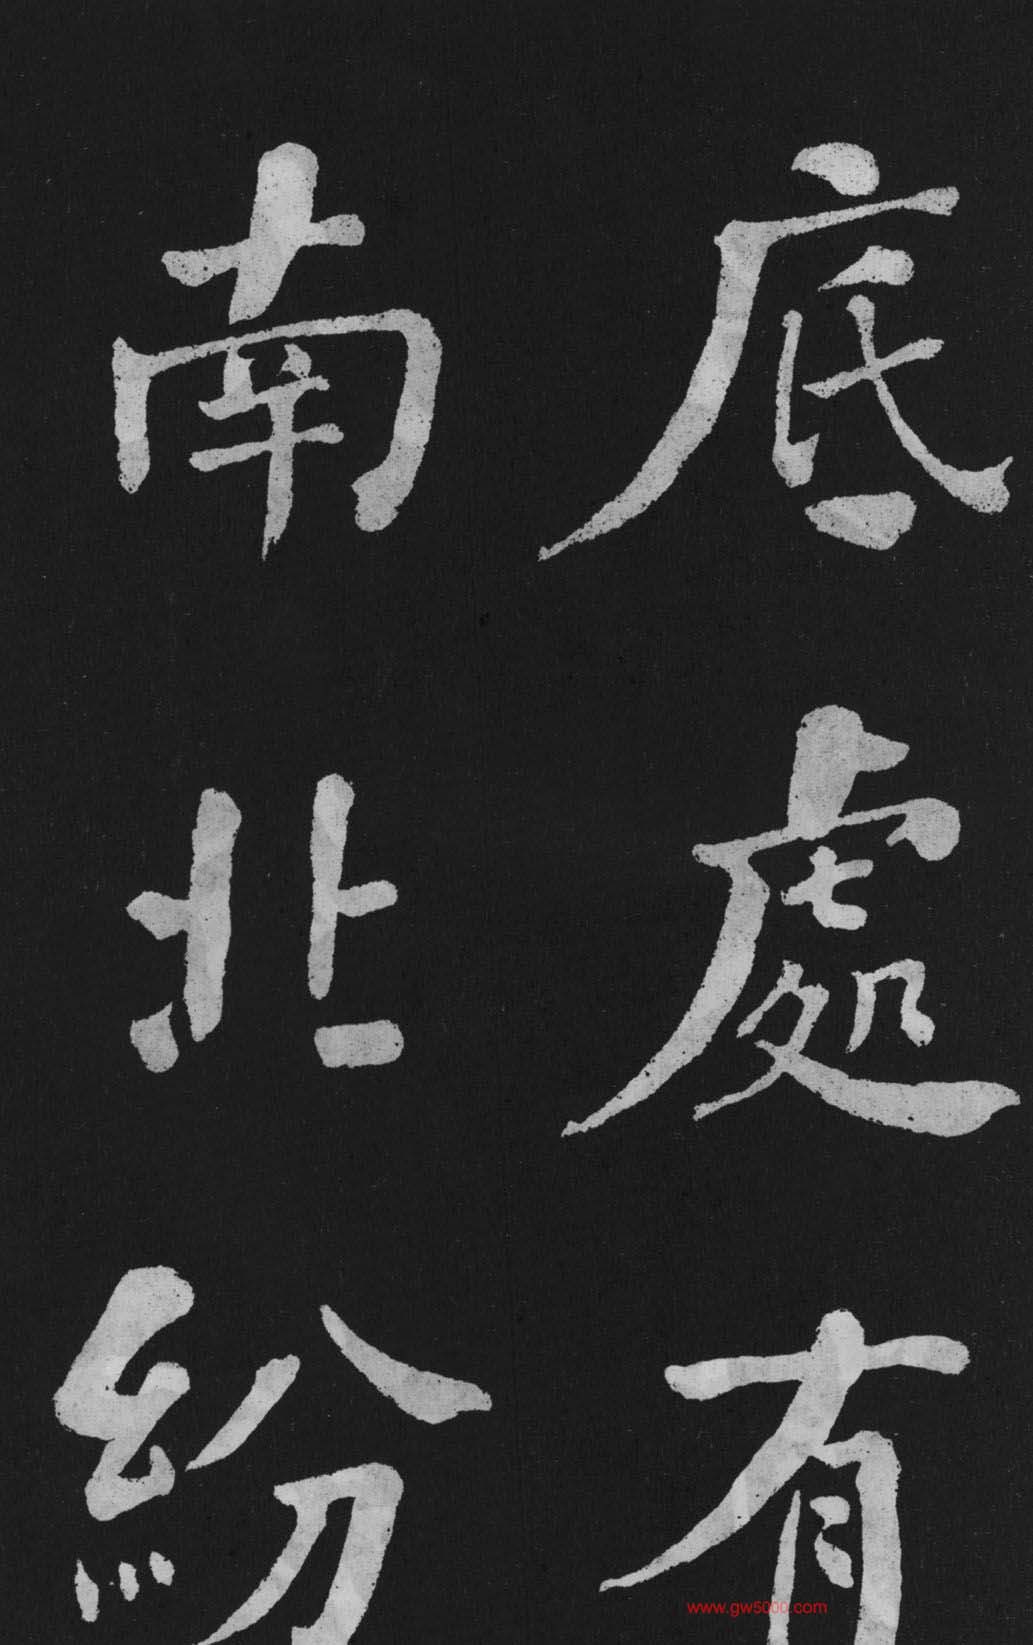 底處有
南北紛
www.gw5000.com